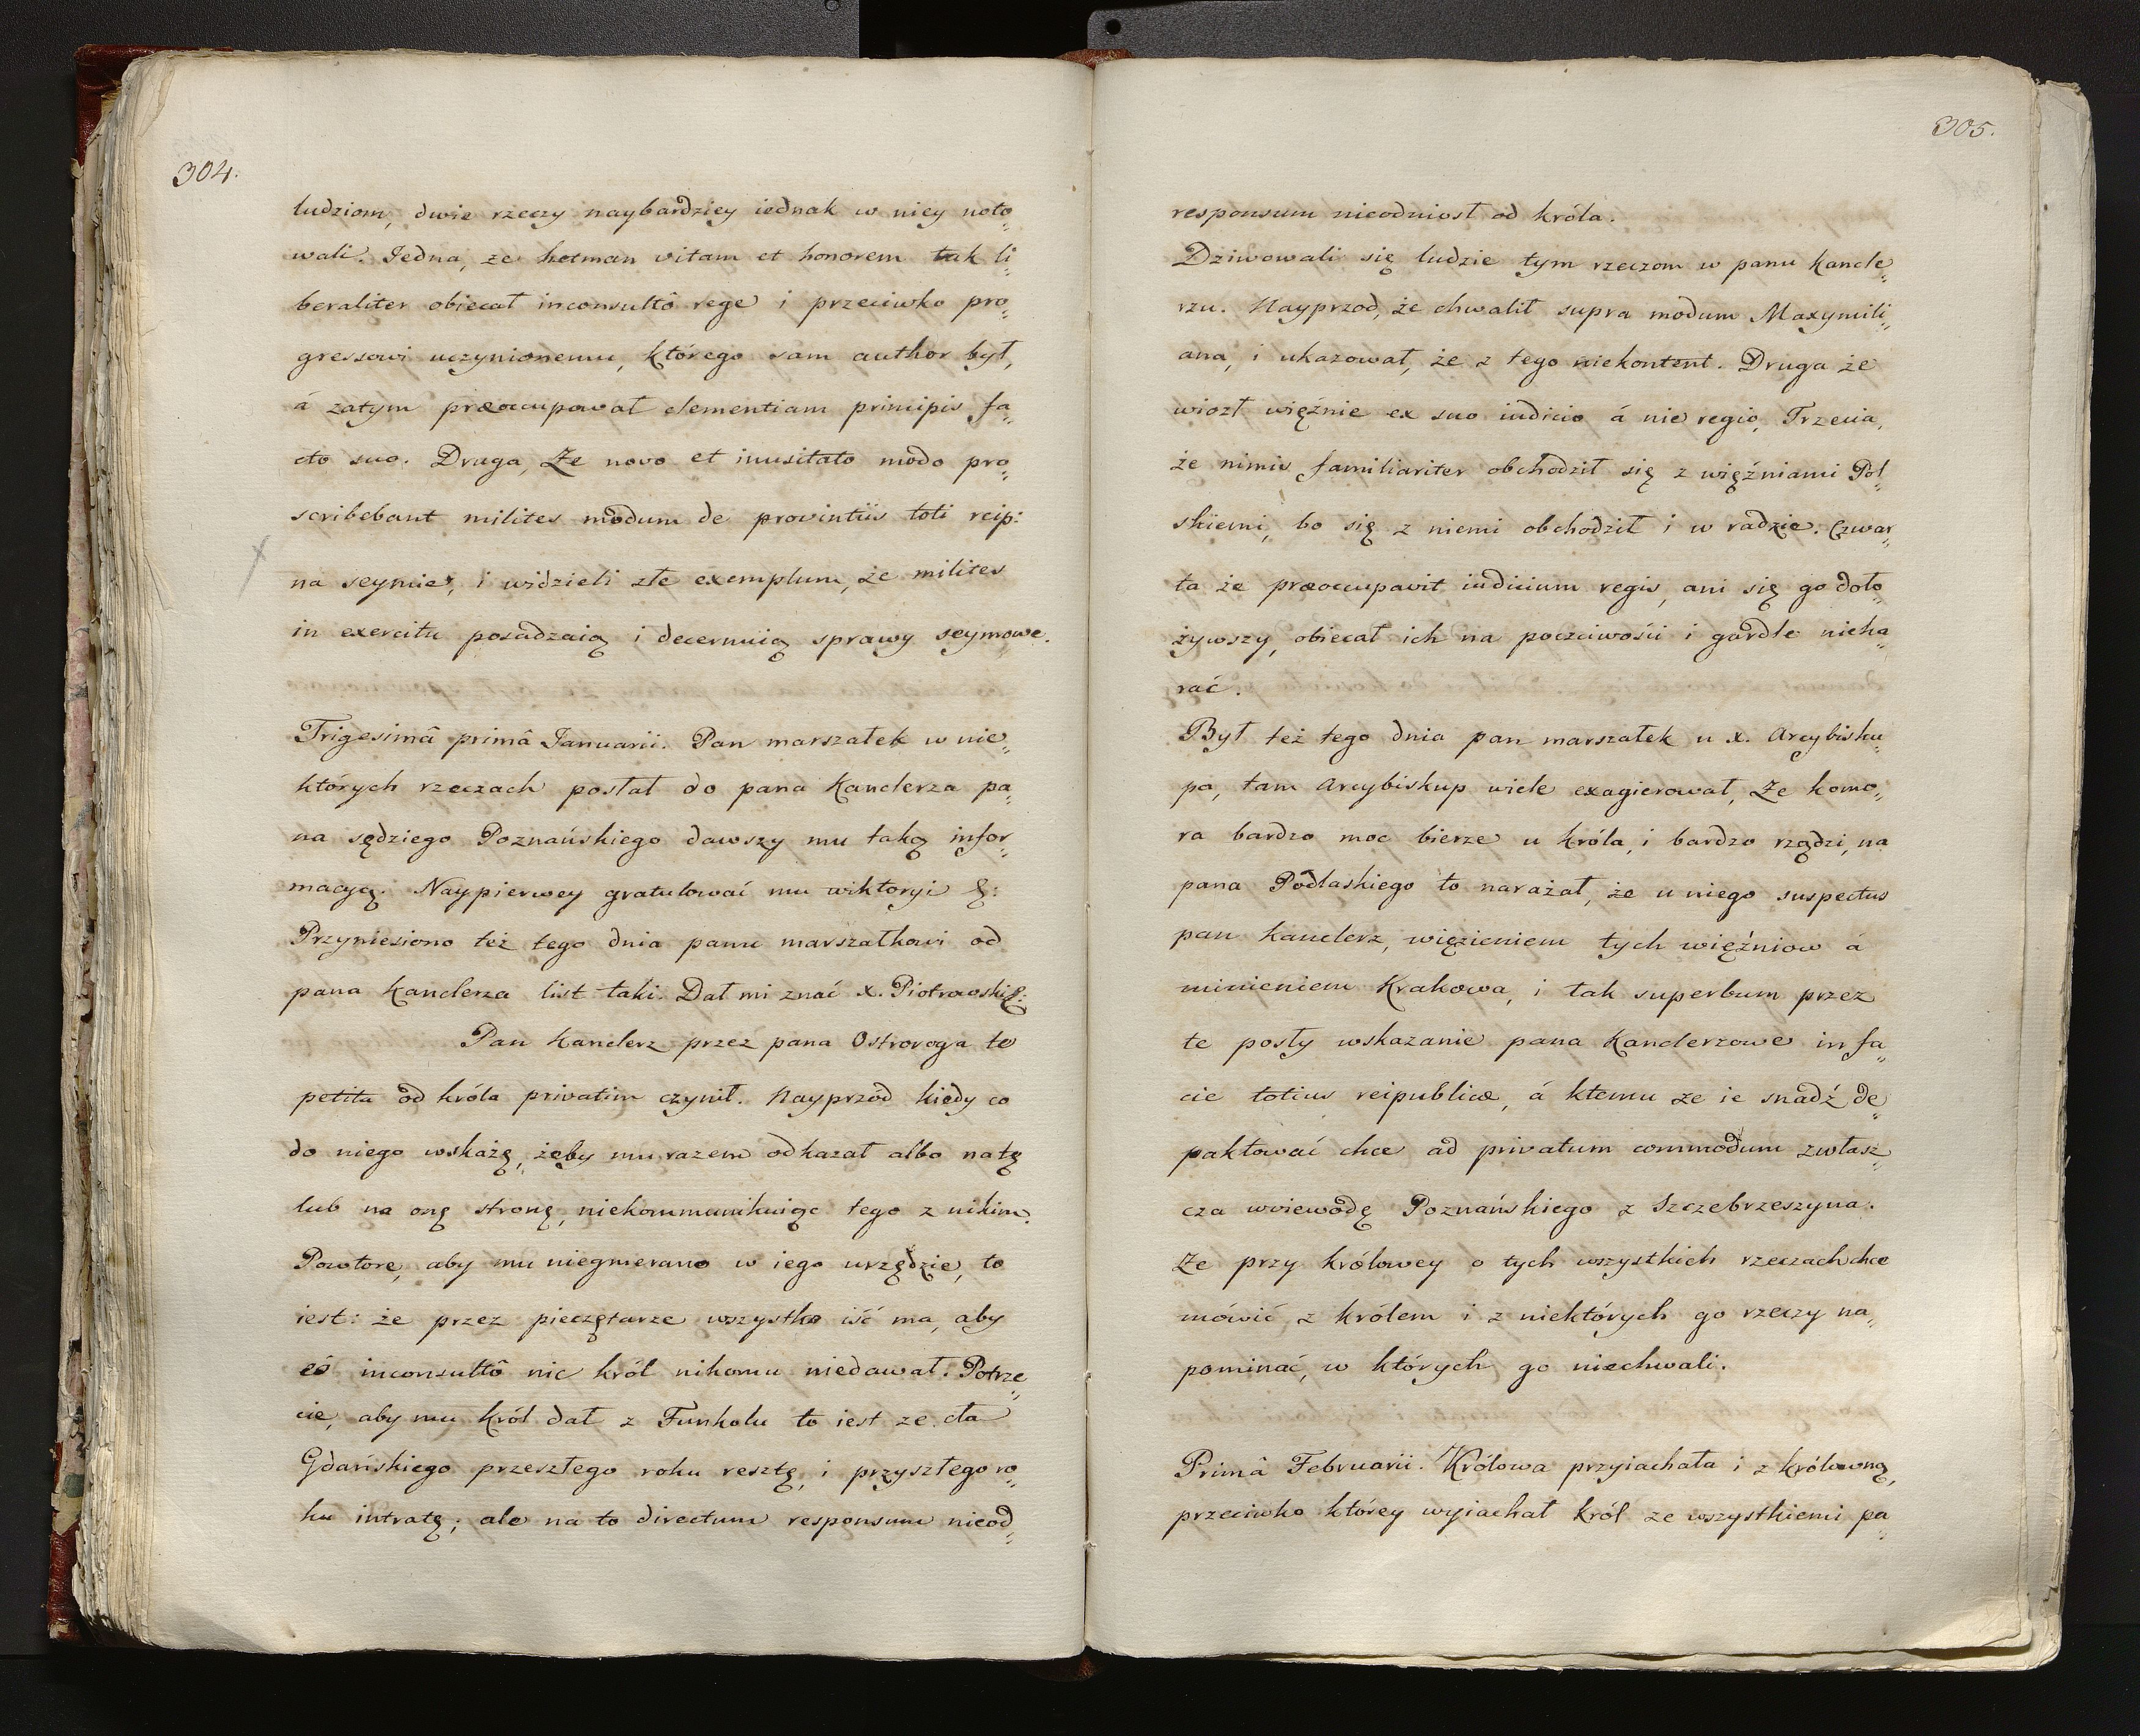 304.
ludziom, dwie rzeczy naybardziey iednak w niey noto„
wali. Jedna, że hetman vitam et honorem tak li„
beraliter obiecał inconsultô rege i przeciwko pro„
gressowi uczynionemu, którego sam author był,
á zatym præoccupował clementiam principis fa„
cto suo. Druga, Że novo et inusitato modo pro„
scribebant milites modum de provintiis toti reip:
na seymie, i widzieli złe exemplum, że milites
in exercitu posadzaią i decernuią sprawy seymowe.
Trigesimâ primâ Januarii. Pan marszałek w nie„
których rzeczach posłał do pana Kanclerza pa„
na sędziego Poznańskiego dawszy mu taką infor„
macyą. Naypierwey gratulować mu wiktoryi &:
Przyniesiono też tego dnia panu marszałkowi od
pana Kanclerza list taki. Dał mi znać X. Piotrowski &:
Pan Kanclerz przez pana Ostroroga te
petita od króla privatim czynił. Nayprzód kiedy co
do niego wskażę, żeby mu razem odkazał albo na tę
lub na onę stronę, niekommunikuiąc tego z nikim.
Powtore, aby mu niegmerano w iego urzędzie, to
iest: że przez pieczętarze wszystko iść ma, aby
eô inconsultô nic król nikomu niedawał. Potrze„
cie, aby mu król dał z Funkolu to iest ze cła
Gdańskiego przeszłego roku resztę, i przyszłego ro„
ku intratę; ale na to directum responsum nieod„
305.
responsum nieodniosł od króla.
Dziwowali się ludzie tym rzeczom w panu Kancle„
rzu. Nayprzod, że chwalił supra modum Maxymili„
ana, i ukazował, że z tego niekontent. Druga że
wiozł więźnie ex suo iudicio á nie regio, Trzecia,
że nimis familiariter obchodził się z więźniami Pol„
skiemi, bo się z niemi obchodził i w radzie. Czwar„
ta że præoccupavit iudicium regis, ani się go doło„
żywszy, obiecał ich na poczciwości i gardle nieka„
rać.
Był też tego dnia pan marszałek u X. Arcybisku„
pa, tam Arcybiskup wiele exagierował, Że komo„
ra bardzo moc bierze u króla, i bardzo rządzi, na
pana Podlaskiego to narażał, że u niego suspectus
pan kanclerz, więzieniem tych więźniow á
minieniem Krakowa, i tak superbum przez
te posły wskazanie pana Kanclerzowe in fa„
cie totius reipublicæ, á ktemu że ie snadź de„
paktować chce ad privatum commodum zwłasz„
cza woiewodę Poznańskiego z Szczebrzeszyna.
Że przy królowey o tych wszystkich rzeczach chce
mówić z królem i z niektórych go rzeczy na„
pominać, w których go niechwali.
Primâ Februarii. Królowa przyiachała i z królewną,
przeciwko którey wyiachał król ze wszystkiemi pa„